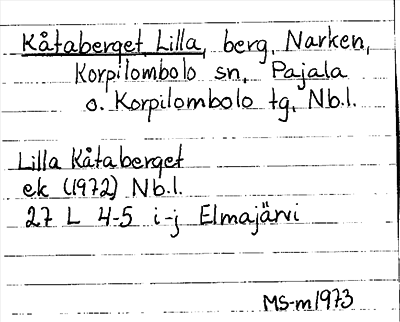 Kåtaberget, Lilla, berg, Narken,
Korpilombolo sn, Pajala
o. Korpilombolo tg, Nb.l.
Lilla Kåtaberget
ek (1972) Nb.l.
27 L 4-5 i-j Elmajärvi
MS-m1973